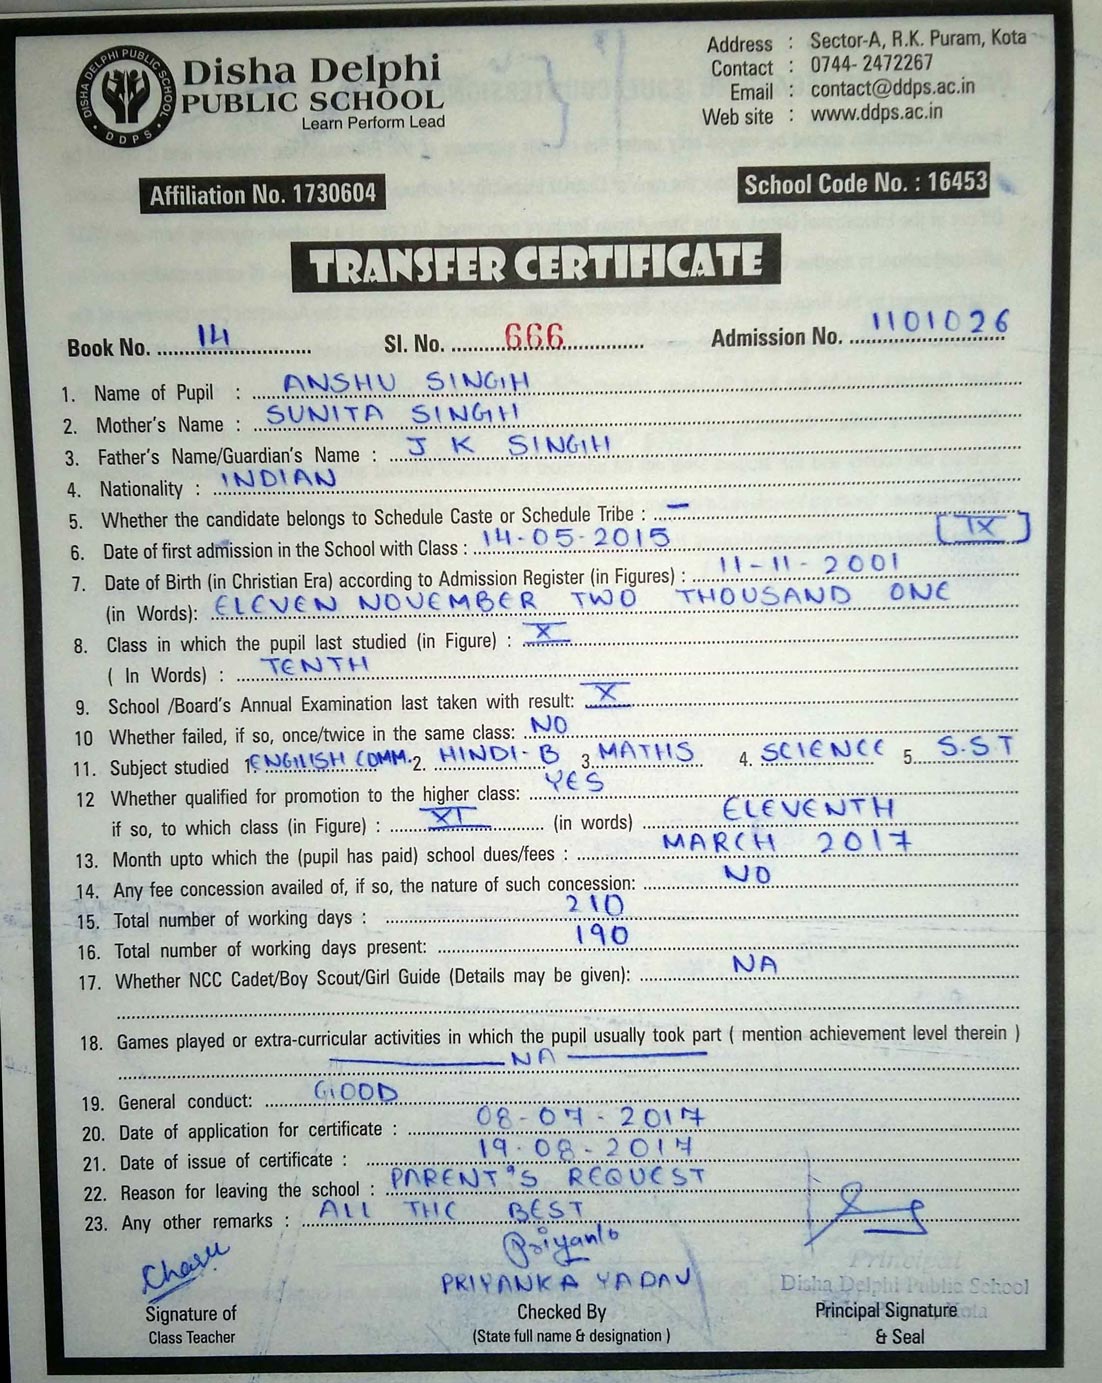 DISHA DELPHI PUBLIC SCHOOL
DDPS
Disha Delphi
PUBLIC SCHOOL
Learn Perform Lead
Address : Sector-A, R.K. Puram, Kota
Contact : 0744- 2472267
Email : contact@ddps.ac.in
Web site : www.ddps.ac.in
Affiliation No. 1730604
School Code No. : 16453
TRANSFER CERTIFICATE
Book No. 14 Sl. No. 666 Admission No. 1101026
1. Name of Pupil : ANSHU SINGH
2. Mother's Name : SUNITA SINGH
3. Father's Name/Guardian's Name : J K SINGH
4. Nationality : INDIAN
5. Whether the candidate belongs to Schedule Caste or Schedule Tribe : –
6. Date of first admission in the School with Class : 14-05-2015 [IX]
7. Date of Birth (in Christian Era) according to Admission Register (in Figures) : 11-11-2001
(in Words): ELEVEN NOVEMBER TWO THOUSAND ONE
8. Class in which the pupil last studied (in Figure) : X
( In Words) : TENTH
9. School /Board's Annual Examination last taken with result: X
10 Whether failed, if so, once/twice in the same class: NO
11. Subject studied 1. ENGLISH COMM. 2. HINDI-B 3. MATHS 4. SCIENCE 5. S.S.T
12 Whether qualified for promotion to the higher class: YES
if so, to which class (in Figure) : XI (in words) ELEVENTH
13. Month upto which the (pupil has paid) school dues/fees : MARCH 2017
14. Any fee concession availed of, if so, the nature of such concession: NO
15. Total number of working days : 210
16. Total number of working days present: 190
17. Whether NCC Cadet/Boy Scout/Girl Guide (Details may be given): NA
18. Games played or extra-curricular activities in which the pupil usually took part ( mention achievement level therein )
NA
19. General conduct: GOOD
20. Date of application for certificate : 08-07-2017
21. Date of issue of certificate : 19-08-2017
22. Reason for leaving the school : PARENT'S REQUEST
23. Any other remarks : ALL THE BEST
Charu Priyanka
PRIYANKA YADAV
Principal
Disha Delphi Public School
Kota
Signature of Checked By Principal Signature
Class Teacher (State full name & designation ) & Seal